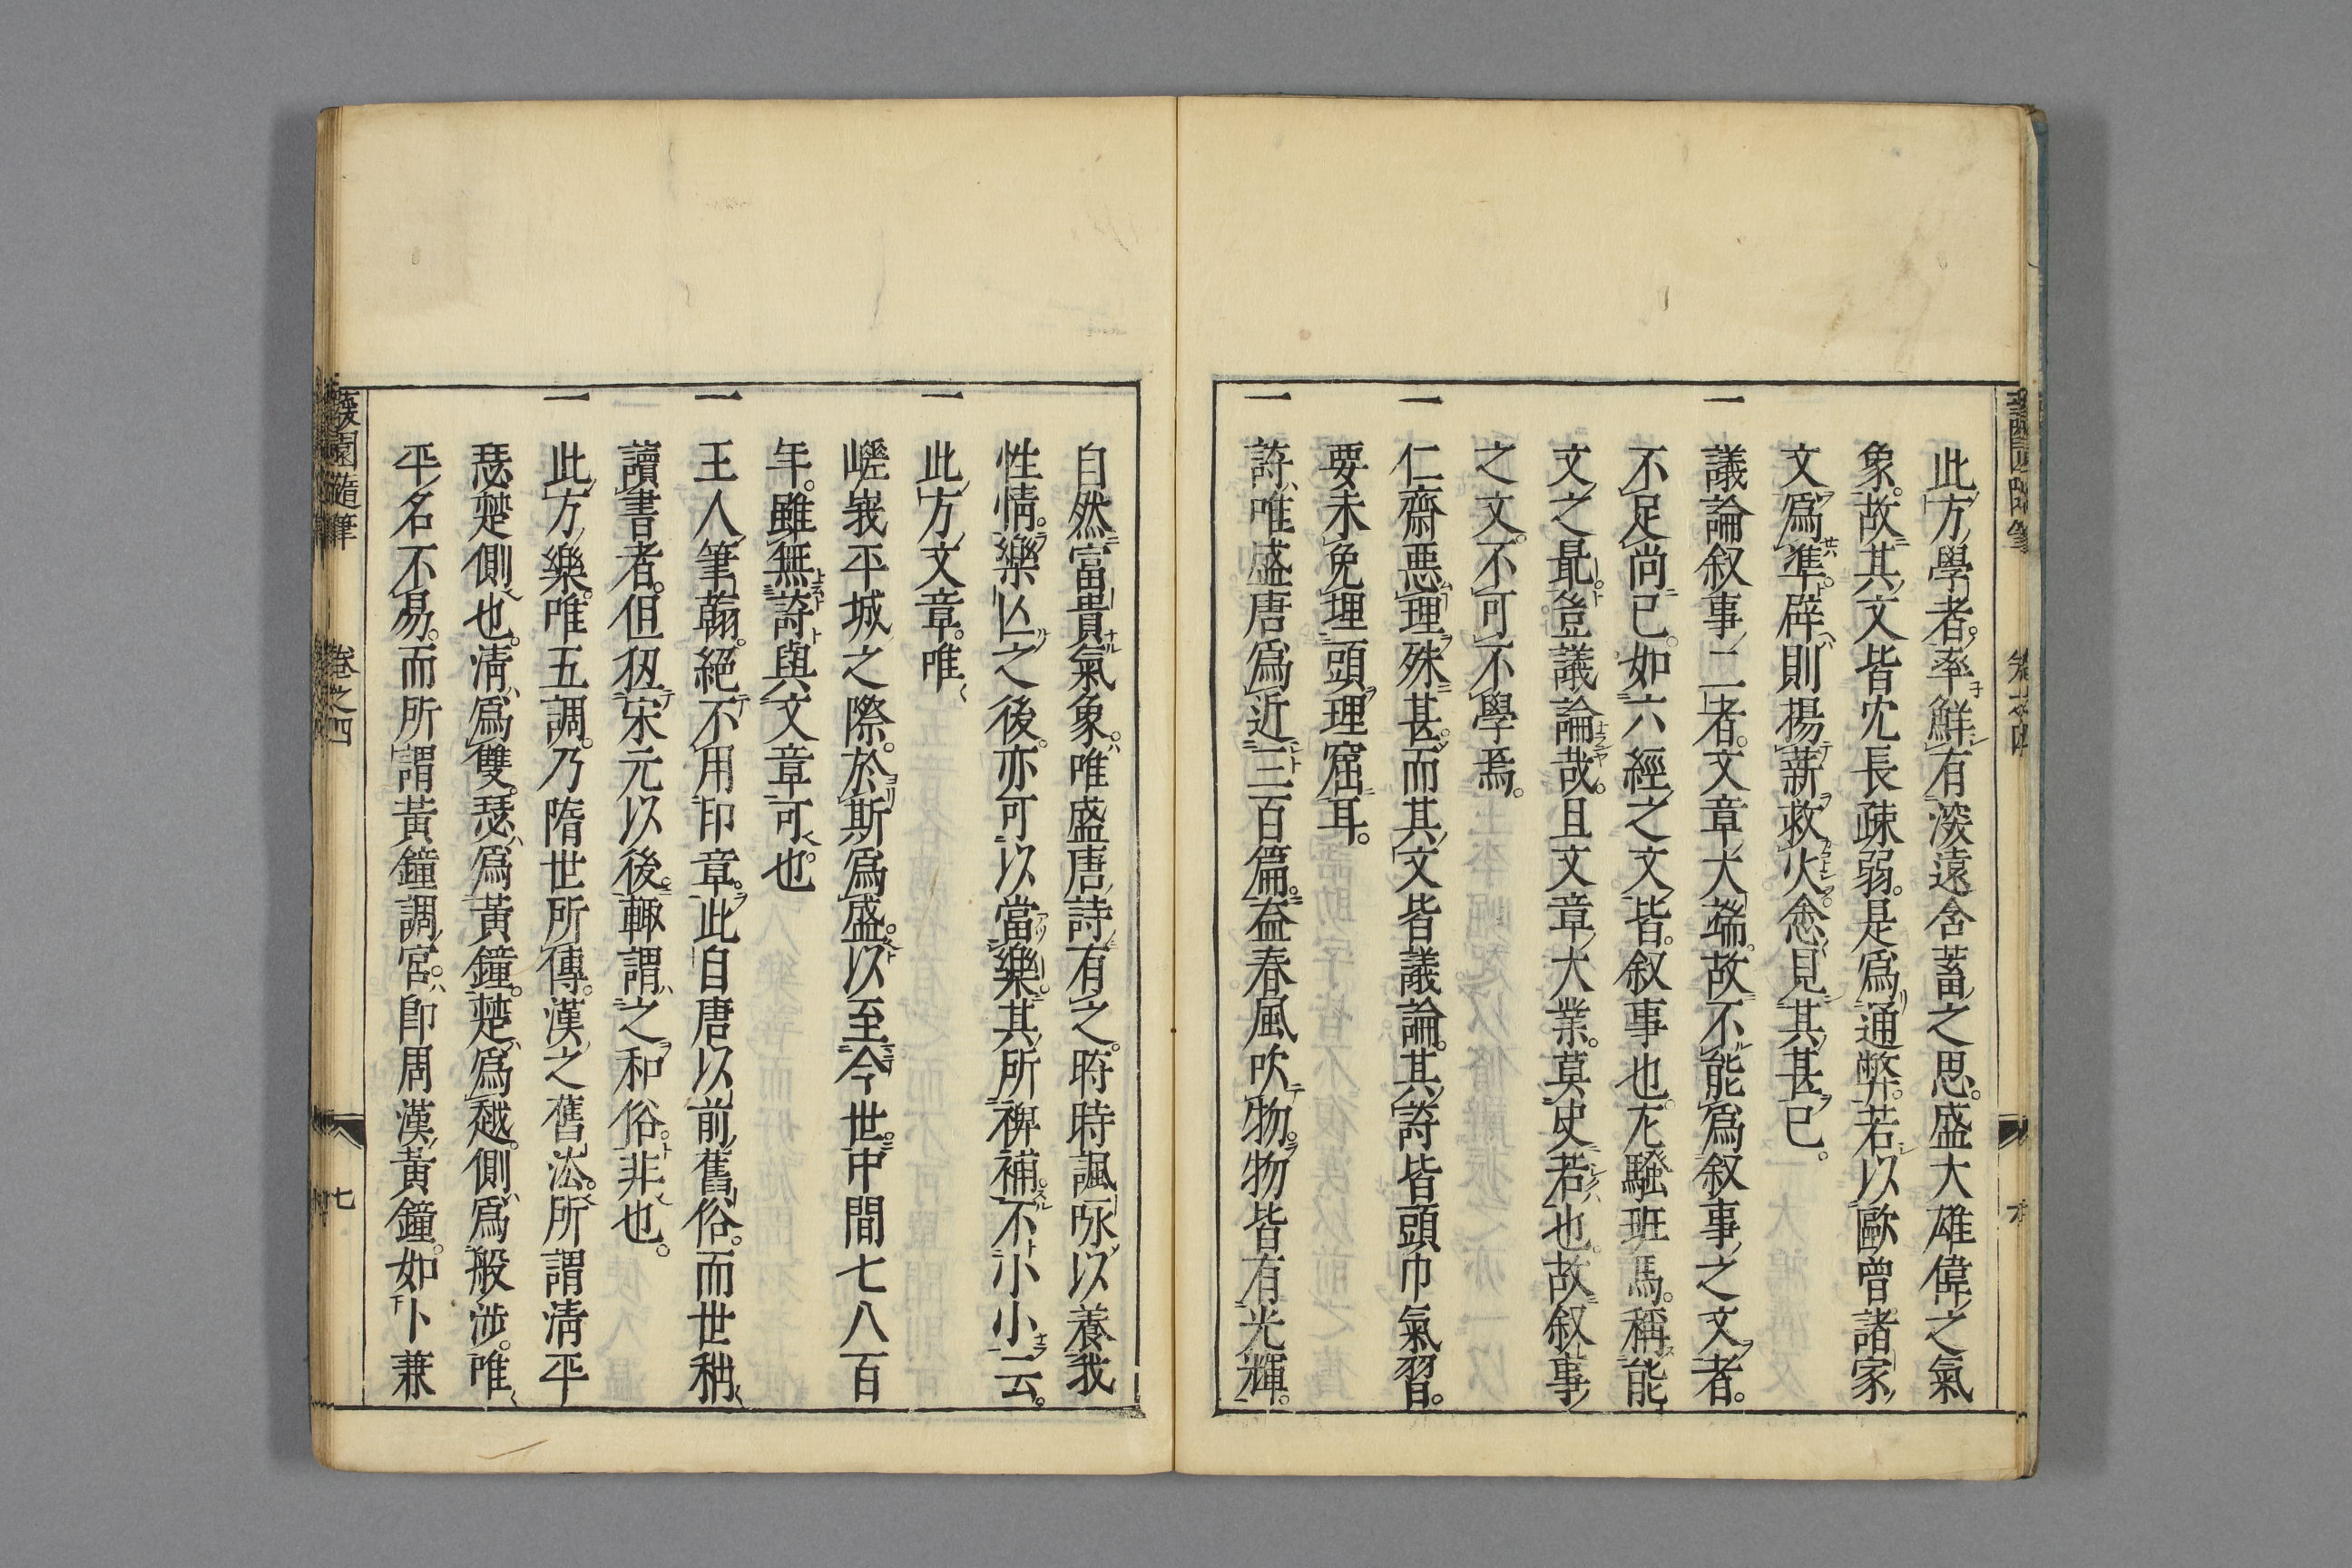 此方學者。率鮮有深遠含蓄之思。盛大雄偉之氣
象。故其文皆冗長疎弱。是爲通弊。若以歐曾諸家
文爲準。辟則揚薪救火。悆見其甚已。
一議論叙事二者。文章大端。故不能爲叙事之文者。
不足尚已。如六經之文。皆叙事也。左騷班馬。稱能
文之最。豈議論哉。且文章大業。莫史若也。故叙事
之文。不可不學焉。
一仁齋惡理殊甚。而其文皆議論。其詩皆頭巾氣習。
要未免埋頭理窟耳。
一詩唯盛唐爲近三百篇。益春風吹物。物皆有光輝。
自然富貴氣象。唯盛唐詩有之。時時諷詠以養我
性情。樂亾之後。亦可以當樂。其所裨補。不小小云。
一此方文章。唯
嵯峩平城之際。於斯爲盛。以至今世。中間七八百
年。雖無詩與文章可也。
一王人筆翰。絕不用印章。此自唐以前舊俗。而世稍
讀書者。但狃宋元以後。輙謂之和俗。非也。
一此方樂。唯五調。乃隋世所傳。漢之舊法。所謂淸平
瑟楚側也。淸爲雙。瑟爲黃鐘。楚爲越。側爲般涉。唯
平名不易。而所謂黃鐘調宮。卽周漢黃鐘。如卜兼
蘐園隨筆 卷之四 七